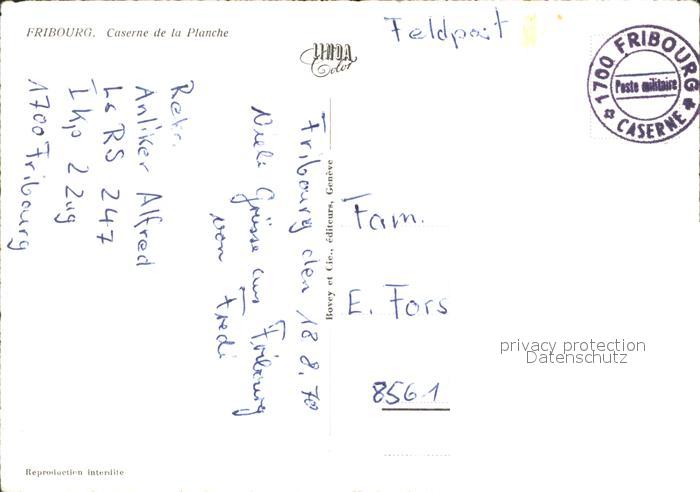 FRIBOURG. Caserne de la Planche
Feldpost
1700 FRIBOURG
Poste militaire
CASERNE
Color
Rekr.
Anliker Alfred
Ls RS 247
I Kp 2 Zug
1700 Fribourg
Fribourg den 18.8.70
Viele Grüsse aus Fribourg
von Fredi
Bovey et Cie., éditeurs, Genève
Fam.
E. Fors
8561
privacy protection
Datenschutz
Reproduction interdite